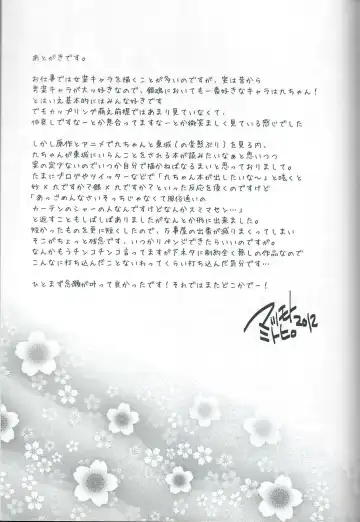 あとがきです。
お仕事では女装キャラを描くことが多いのですが、実は昔から
男装キャラが大っ好きなので、銀魂においても一番好きなキャラは九ちゃんです!
とはいえ基本的にはみんな好きです
でもカップリング萌え前提ではあまり見ていなくて、
仲良しですなーとか息合ってますなーとか微笑ましく見ている感じでした
しかし原作とアニメで九ちゃんと東城(の変態ぶり)を見る内、
九ちゃんが東城にいろんなことをされる本が読みたいなぁと思いつつ
実の少ないのですが自分で描かねばなるまいと思っておりまして。
たまにブログやツイッターなどで「九ちゃん本が出したいな~」と呟くと
妙×九ですか?銀×九ですか?といった反応を頂くのですけど
「あっごめんなさいそっちじゃなくて
カーテンのシャーの人なんですけどなんかスミマセン…」
と返すこともしばしばありましたがなんとか形に出来ました。
短かったものを更に短くしたので、万事屋の出番が減りまくってしまい
そこがちょっと残念です、いつかリベンジできたらいいのですが。
なんかもうチンコチンコ言ってますが下ネタに制約全く無しの作品なので
こんなに打ち込んだことないわってくらい打ち込んだ自分です…
ひとまず念願が叶って良かったです!それではまたどこかでー!
マツモト
ミトヒロ
2012